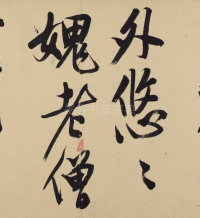 外悠〻
媿老僧